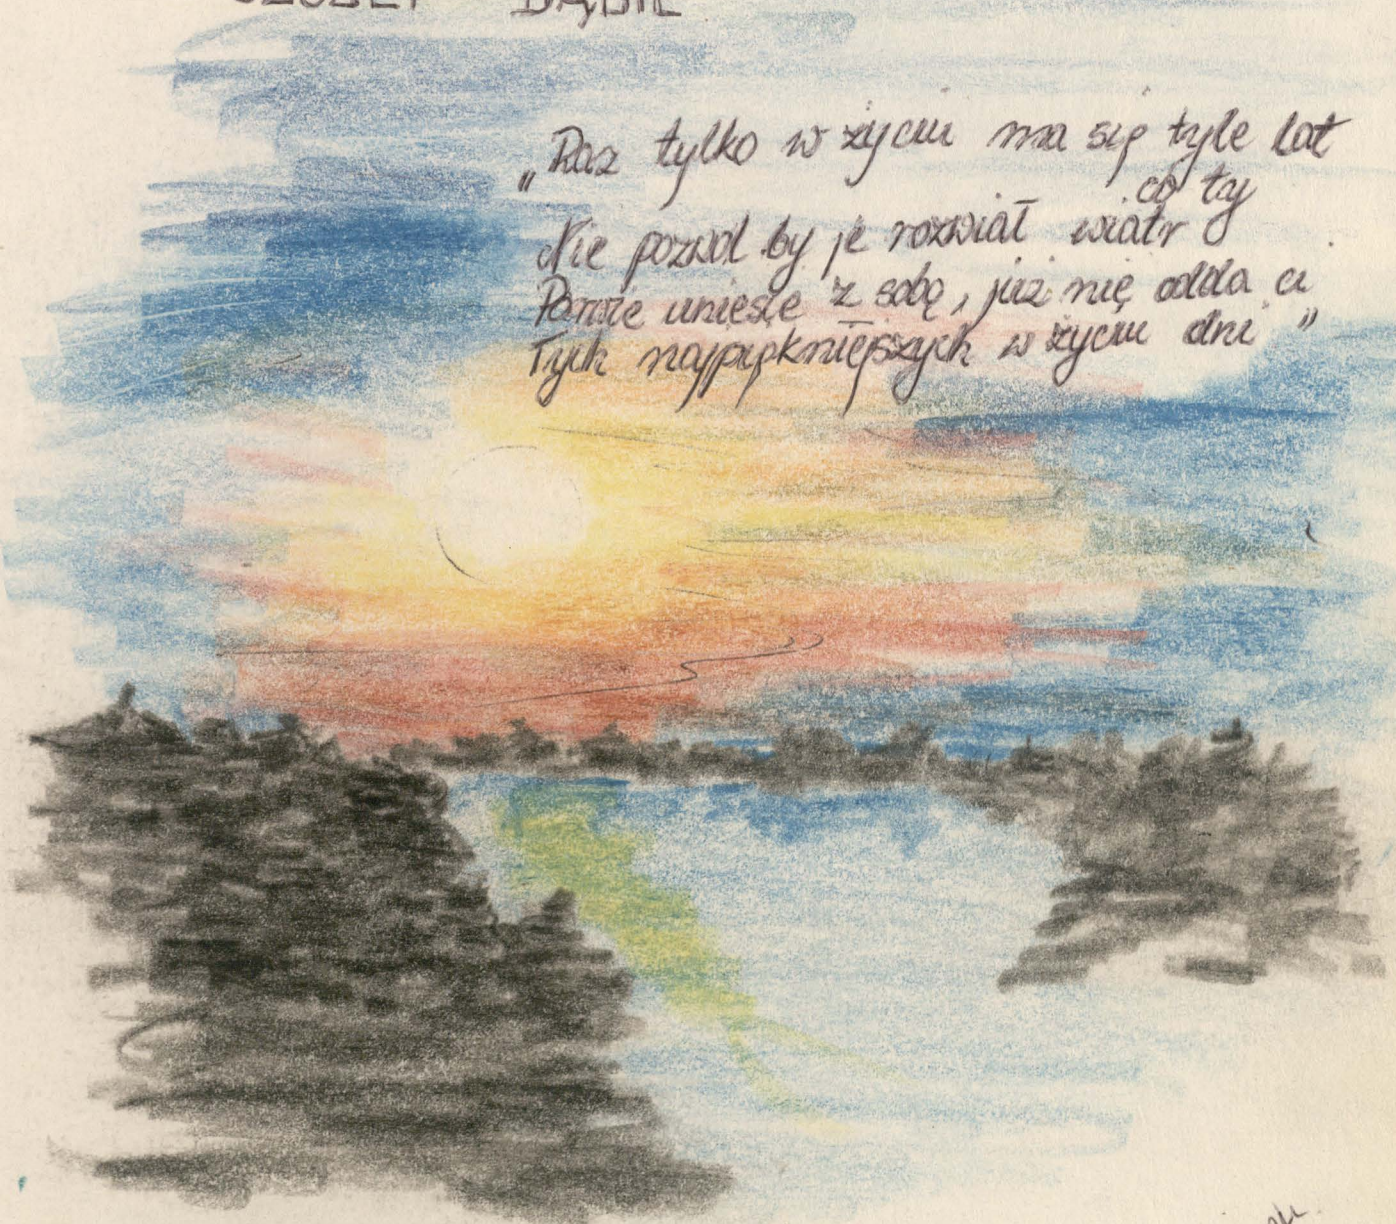 DĄBIE
„Raz tylko w życiu ma się tyle lat
co ty
Nie pozwol by je rozwiał wiatr
Porwie uniesie z sobą, już nię odda ci
Tych najpiękniejszych w życiu dni"